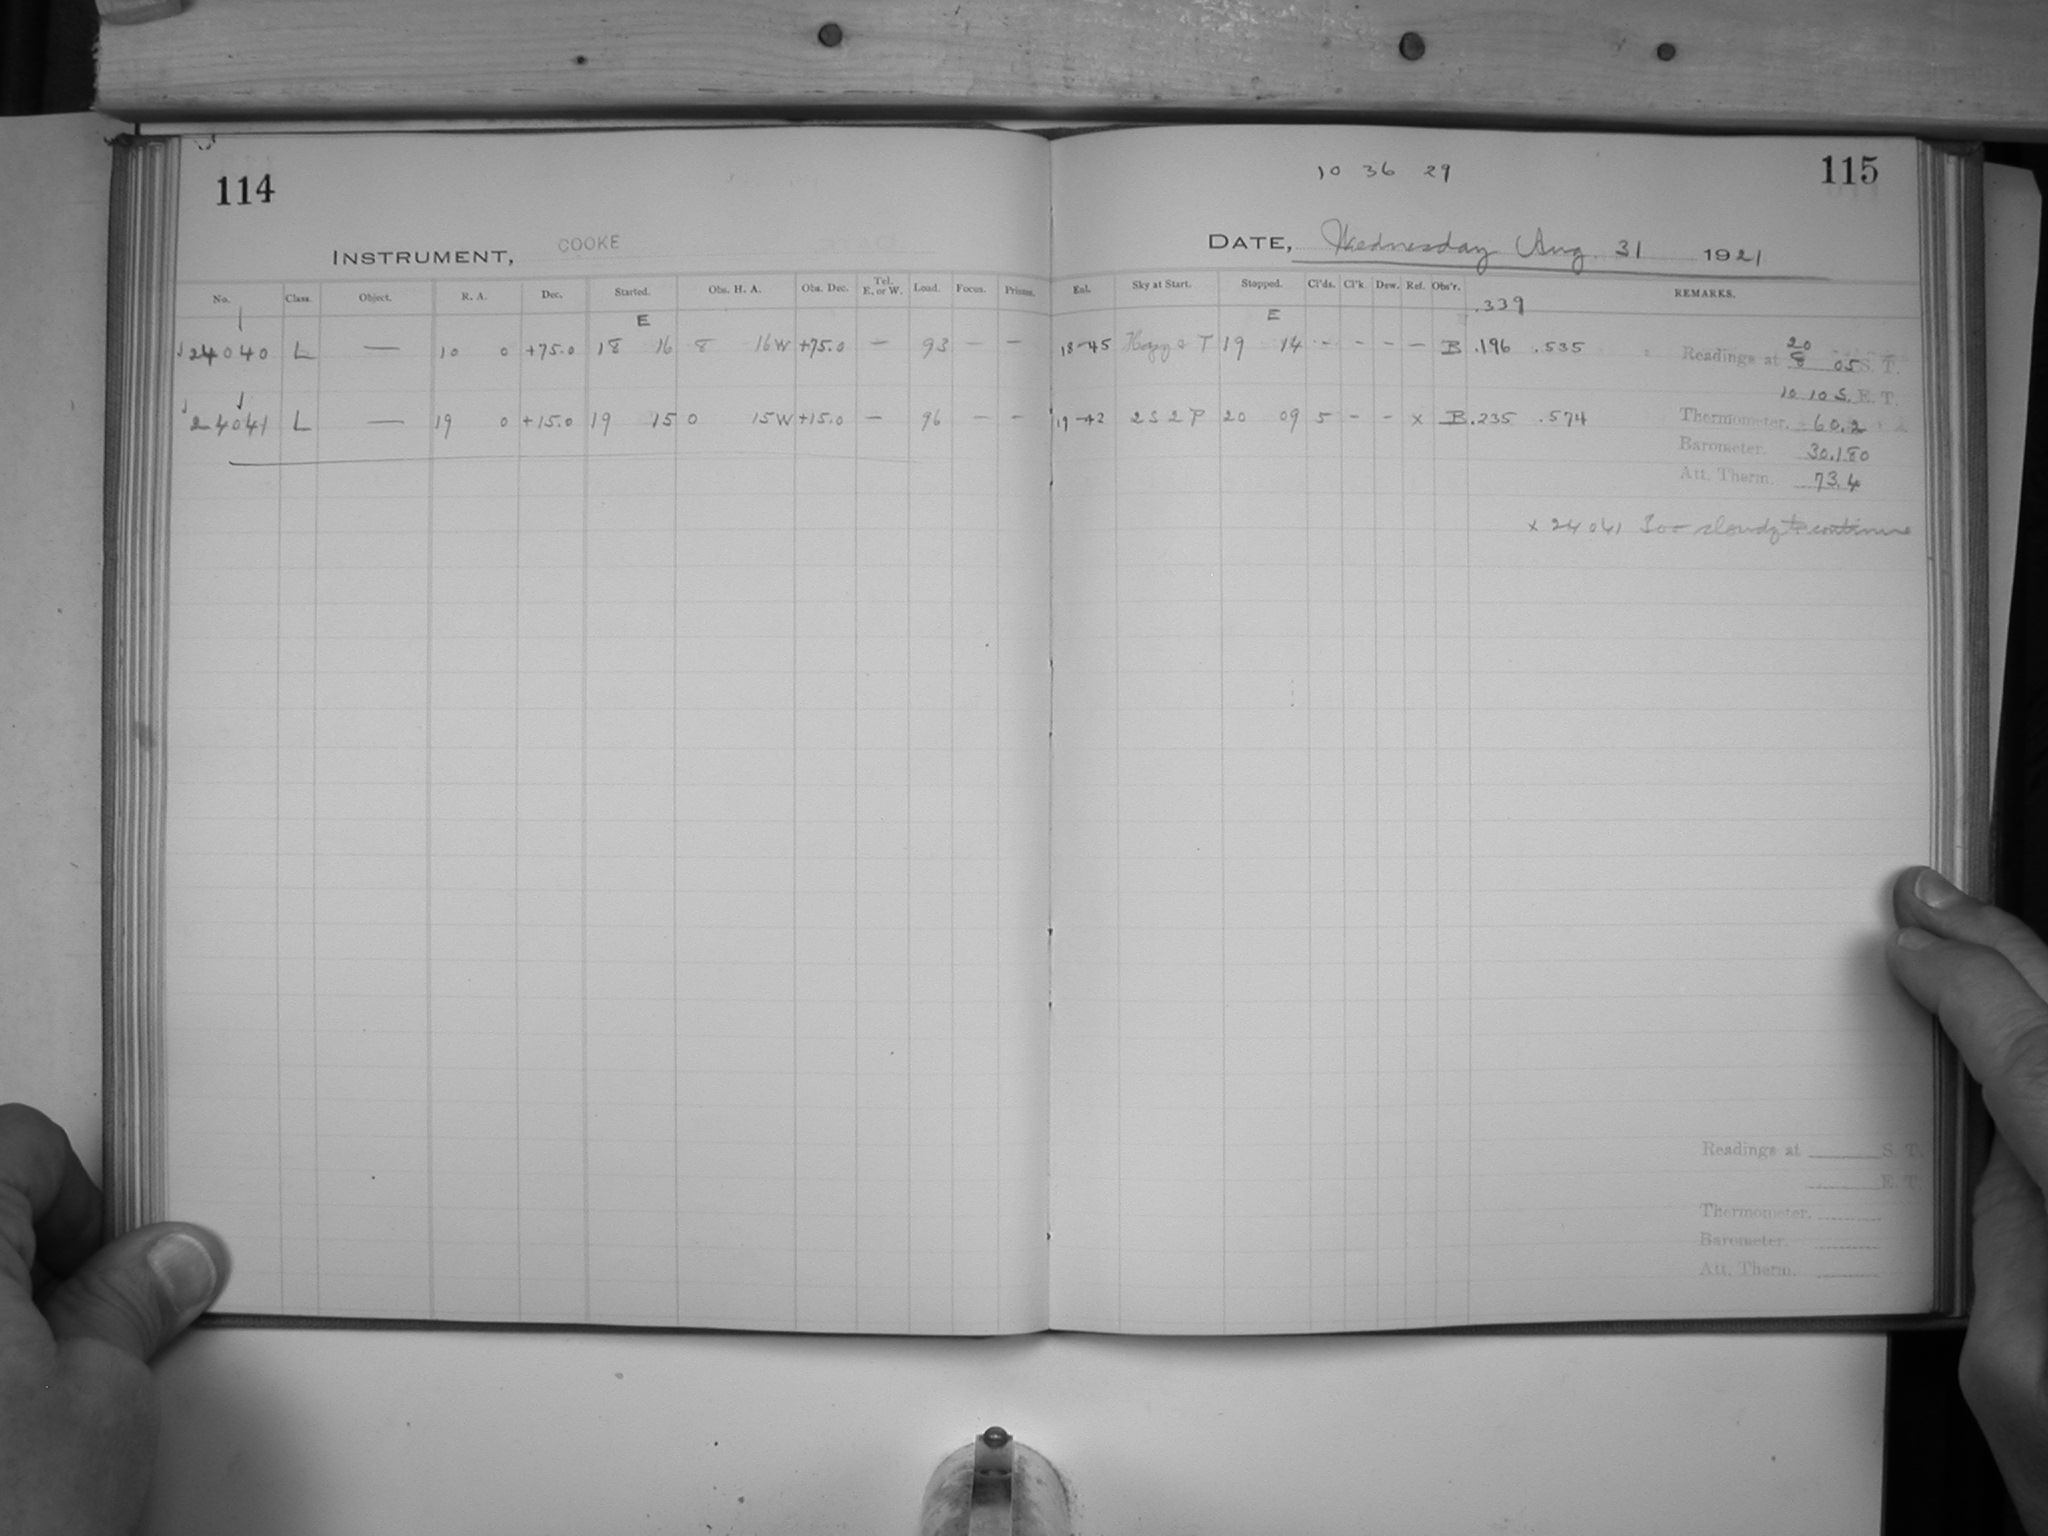 114
INSTRUMENT, COOKE
No. Class. Object. R. A. Dec. Started. Obs. H. A. Obs. Dec. Tel. E. or W. Load. Focus. Prisms.
E
24040 L — 10 0 +75.0 18 16 8 16W +75.0 — 93 — —
24041 L — 19 0 +15.0 19 15 0 15W +15.0 — 96 — —
10 36 29 115
DATE, Wednesday Aug. 31 1921
Exl. Sky at Start. Stopped. Cl'ds. Cl'k. Dew. Ref. Obs'r. .339 REMARKS.
E
18-45 Hazy & T 19 14 - - - - B .196 .535
19-42 2 S 2 P 20 09 5 - - x B .235 .574
Readings at 20 8 05 S. T.
10 10 S. E. T.
Thermometer. 60.2
Barometer. 30.180
Att. Therm. 73.4
x 24041 Too cloudy to continue
Readings at S. T.
E. T.
Thermometer.
Barometer.
Att. Therm.